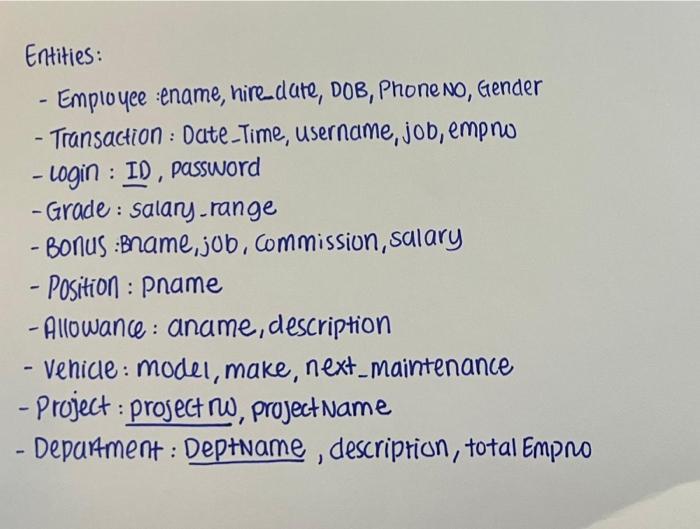 Entities:
- Employee :ename, hire_date, DOB, Phone NO, Gender
- Transaction : Date_Time, username, job, empno
- Login : ID, password
- Grade : salary_range
- Bonus :Bname, job, commission, salary
- Position : pname
- Allowance : aname, description
- Vehicle : model, make, next_maintenance
- Project : project no, project Name
- Department : DeptName, description, total Empno